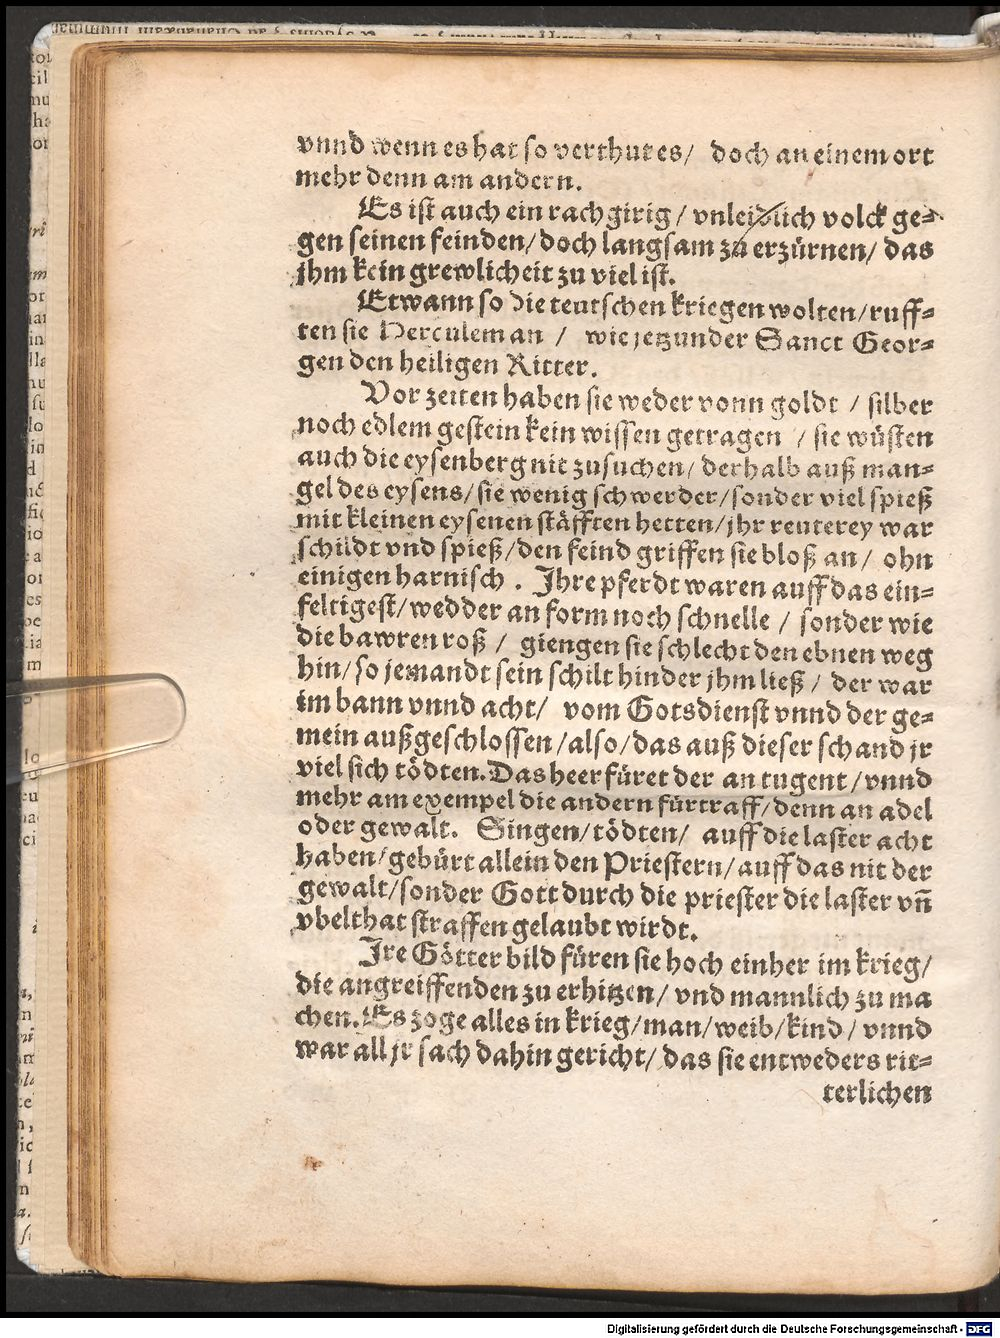 vnnd wenn es hat so verthut es/ doch an einem ort
mehr denn am andern.
Es ist auch ein rachgirig/ vnleidlich volck ge=
gen seinen feinden/ doch langsam zu erzürnen/ das
jhm kein grewlicheit zu viel ist.
Etwann so die teutschen kriegen wolten/ ruff=
ten sie Herculem an / wie jetzunder Sanct Geor=
gen den heiligen Ritter.
Vor zeiten haben sie weder vonn goldt / silber
noch edlem gestein kein wissen getragen / sie wüsten
auch die eysenberg nit zusuchen/ derhalb auß man=
gel des eysens/ sie wenig schwerder/ sonder viel spieß
mit kleinen eysenen stäfften hetten/ jhr reuterey war
schildt vnd spieß/ den feind griffen sie bloß an/ ohn
einigen harnisch. Ihre pferdt waren auff das ein=
feltigest/ wedder an form noch schnelle / sonder wie
die bawren roß / giengen sie schlecht den ebnen weg
hin/ so jemandt sein schilt hinder jhm ließ / der war
im bann vnnd acht/ vom Gotsdienst vnnd der ge=
mein außgeschlossen/ also/ das auß dieser schand jr
viel sich tödten. Das heer füret der an tugent/ vnnd
mehr am exempel die andern fürtraff/ denn an adel
oder gewalt. Singen/ tödten/ auff die laster acht
haben/ gebürt allein den Priestern/ auff das nit der
gewalt/ sonder Gott durch die priester die laster vñ
vbelthat straffen gelaubt wirdt.
Ire Götter bild füren sie hoch einher im krieg/
die angreiffenden zu erhitzen/ vnd mannlich zu ma
chen. Es zoge alles in krieg/ man/ weib/ kind/ vnnd
war all jr sach dahin gericht/ das sie entweders rit=
terlichen
Digitalisierung gefördert durch die Deutsche Forschungsgemeinschaft - DFG